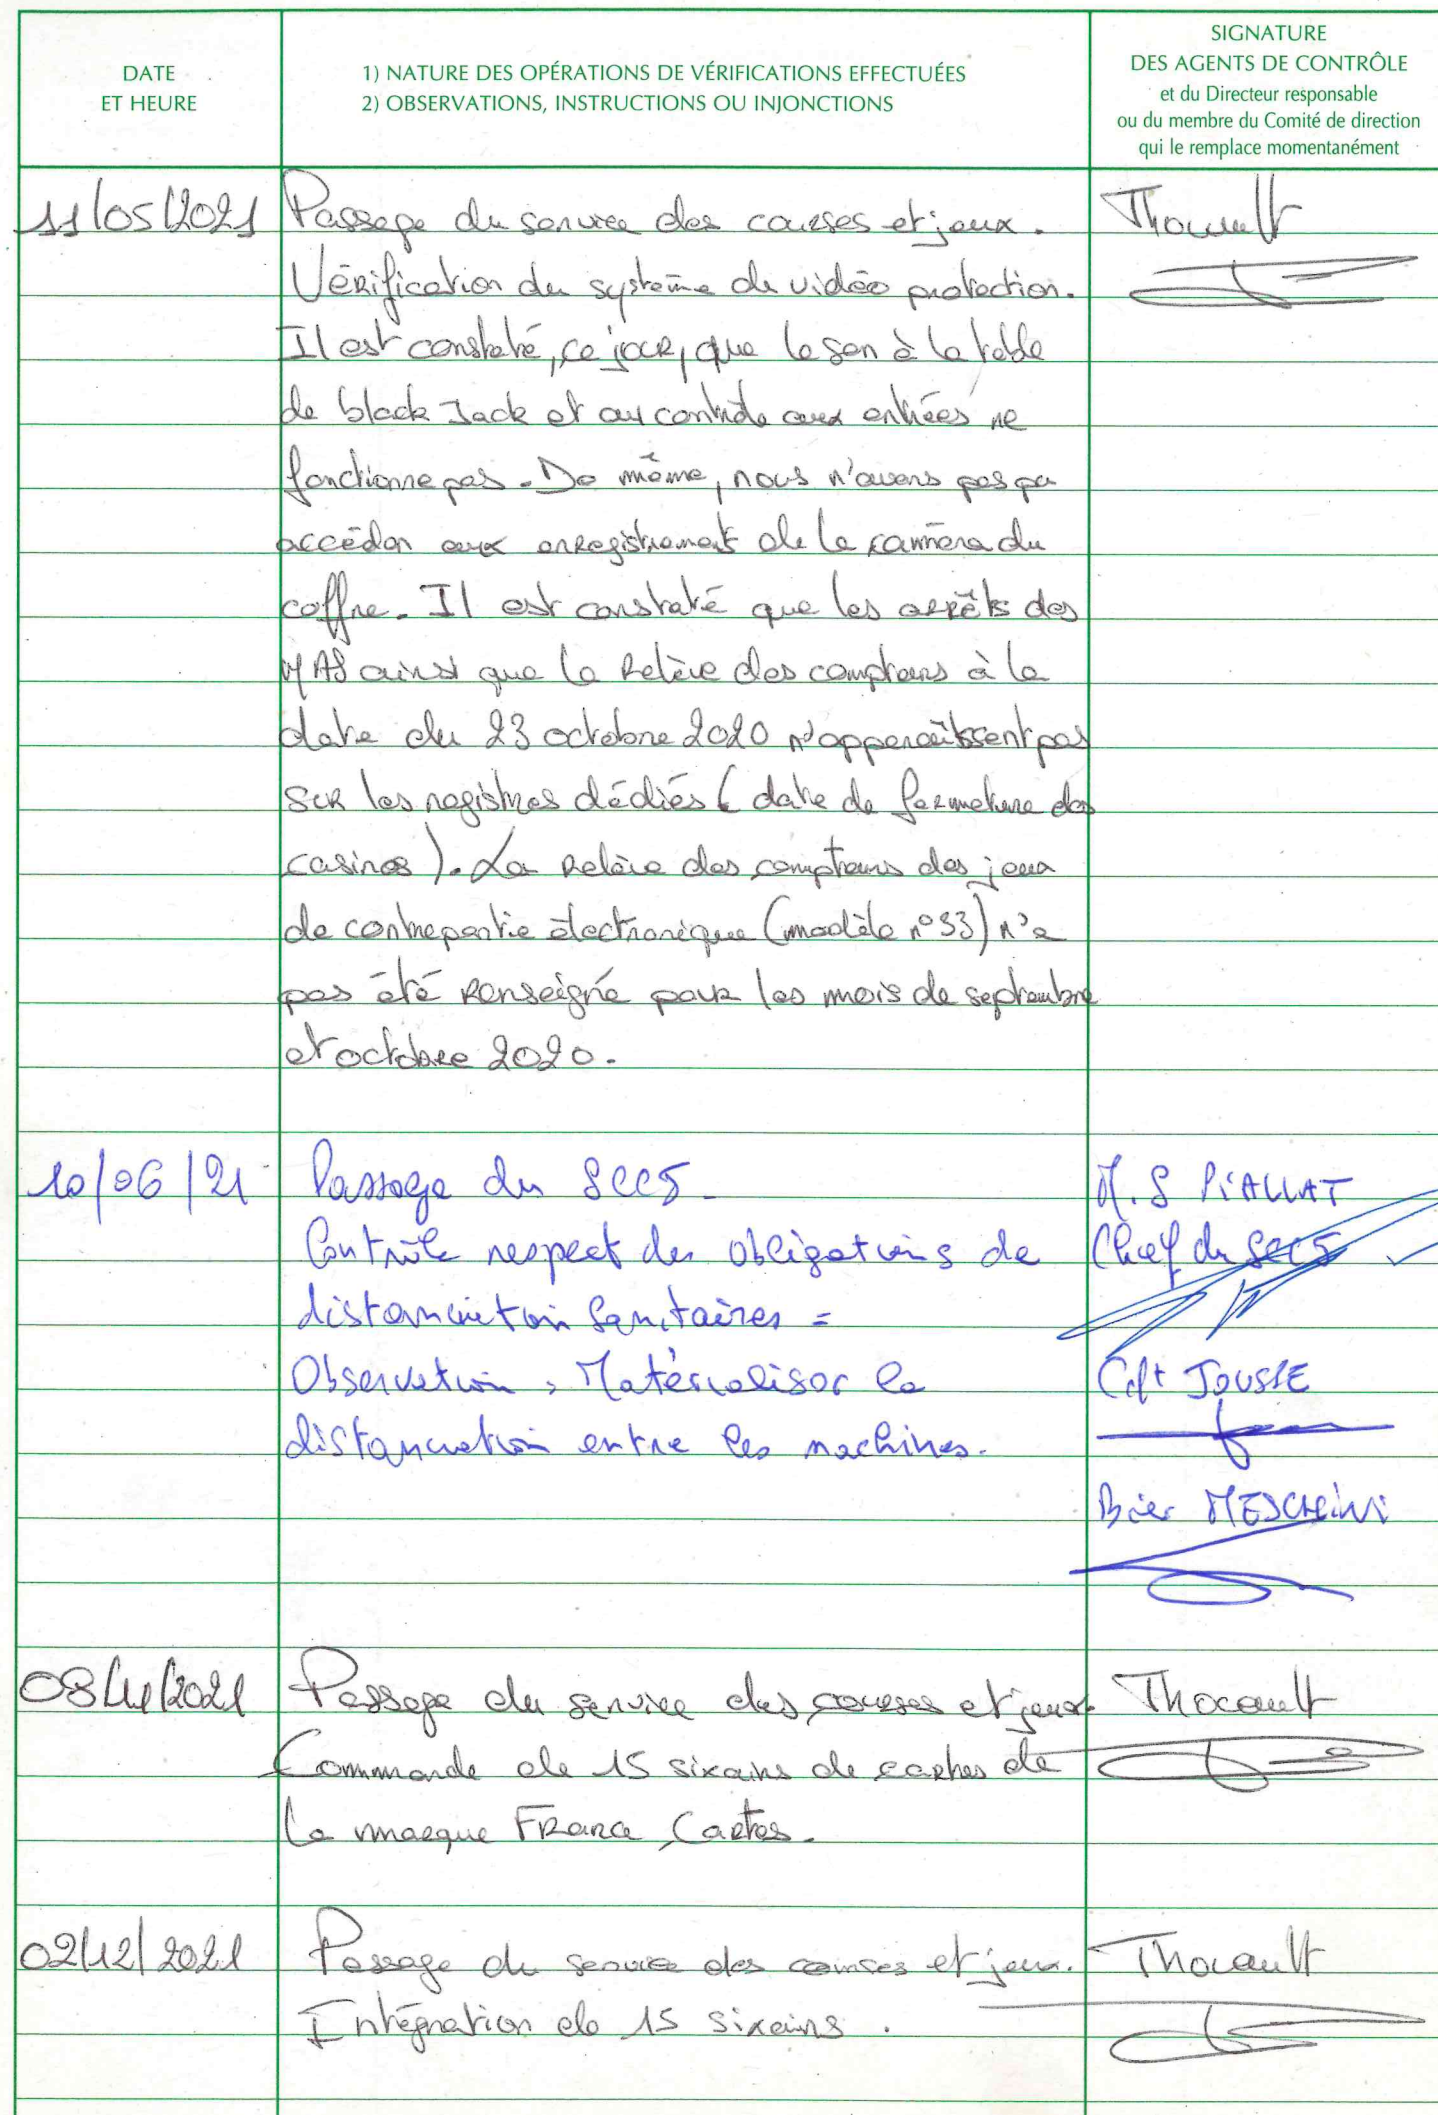 DATE
ET HEURE
1) NATURE DES OPÉRATIONS DE VÉRIFICATIONS EFFECTUÉES
2) OBSERVATIONS, INSTRUCTIONS OU INJONCTIONS
SIGNATURE
DES AGENTS DE CONTRÔLE
et du Directeur responsable
ou du membre du Comité de direction
qui le remplace momentanément
11/05/2021 Passage du service des courses et jeux. Thouault
Vérification du système de vidéo protection.
Il est constaté, ce jour, que le son à la table
de black Jack et au contrôle aux entrées ne
fonctionne pas. De même, nous n'avons pas pu
accéder aux enregistrements de la caméra du
coffre. Il est constaté que les arrêts des
MAS ainsi que la relève des compteurs à la
date du 23 octobre 2020 n'apparaîssent pas
sur les registres dédiés (date de fermeture des
casinos). La relève des compteurs des jeux
de contrepartie électronique (modèle n°33) n'a
pas été renseigné pour les mois de septembre
et octobre 2020.
10/06/21 Passage du SCCJ. M. S PIALLAT
Contrôle respect des obligations de Chef du SCCJ
distanciation sanitaires =
Observation : Matérialiser la Cdt JOUSSE
distanciation entre les machines.
Bier MESCHINI
08/11/2021 Passage du service des courses et jeux. Thouault
Commande de 15 sixains de cartes de
la marque France Cartes.
02/12/2021 Passage du service des courses et jeux. Thouault
Intégration de 15 sixains.